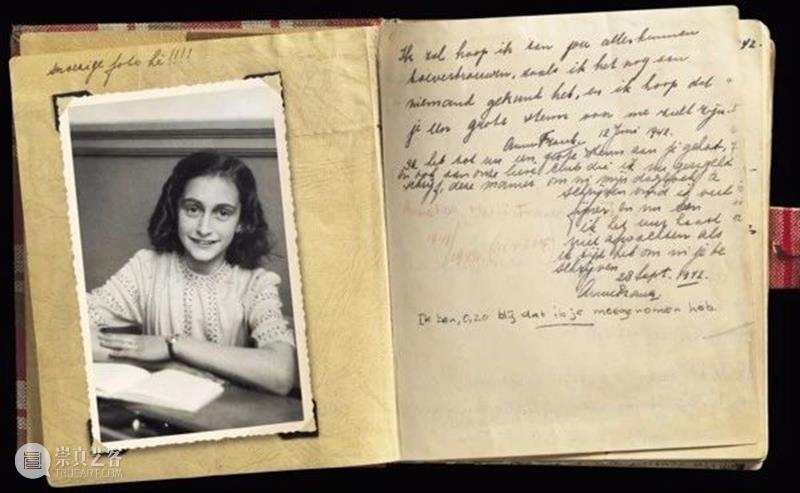 snoezige foto hè!!!!
Ik zal hoop ik aan jou alles kunnen
toevertrouwen, zoals ik het nog aan
niemand gekund heb, en ik hoop dat
je een grote steun voor me zult zijn.
Anne Frank. 12 Juni 1942.
Ik heb tot nu een grote steun aan je gehad,
en ook aan onze lieve club die ik nu geregeld
schrijf, deze manier om in mijn dagboek te
schrijven vind ik veel
fijner en nu kan
ik het uur haast
niet afwachten als
ik tijd heb om in je te
schrijven
28 Sept. 1942.
Anne Frank
Ik ben, o, zo blij dat ik je meegenomen heb.
942.
崇真艺客
TRUEART.COM